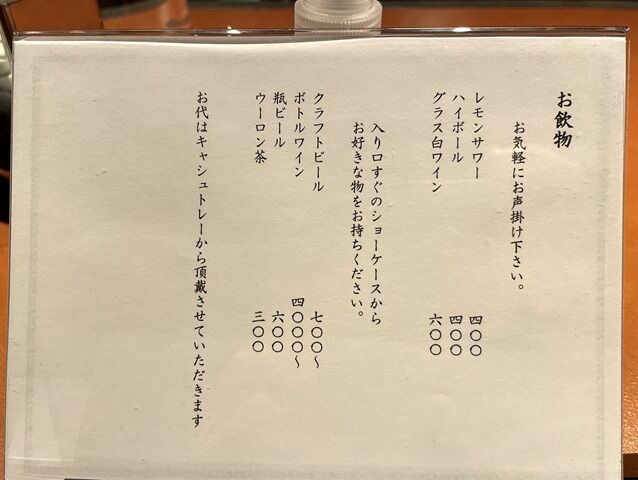 お飲物
お気軽にお声掛け下さい。
レモンサワー 四〇〇
ハイボール 四〇〇
グラス白ワイン 六〇〇
入り口すぐのショーケースから
お好きな物をお持ちください。
クラフトビール 七〇〇〜
ボトルワイン 四〇〇〇〜
瓶ビール 六〇〇
ウーロン茶 三〇〇
お代はキャシュトレーから頂戴させていただきます